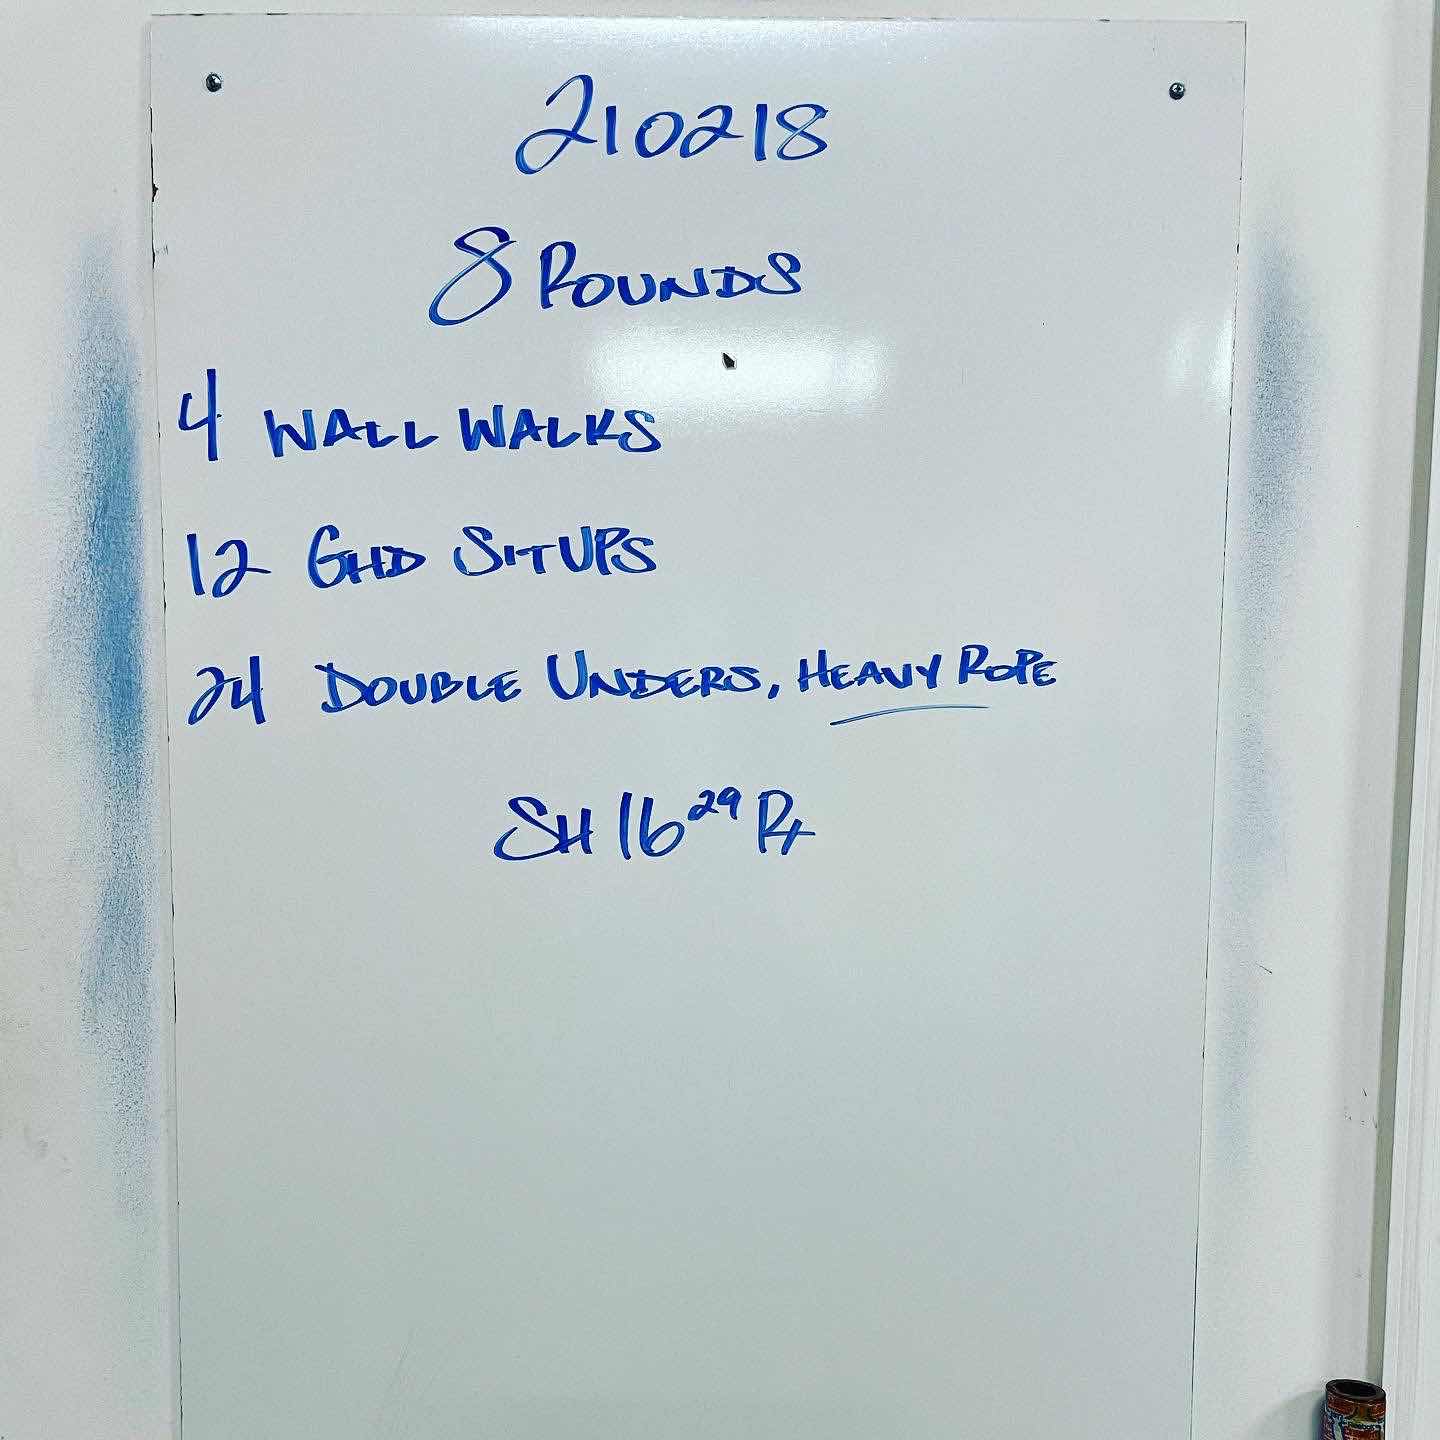 210218
8 ROUNDS
4 WALL WALKS
12 GHD SITUPS
24 DOUBLE UNDERS, HEAVY ROPE
SH 16 29 Rx